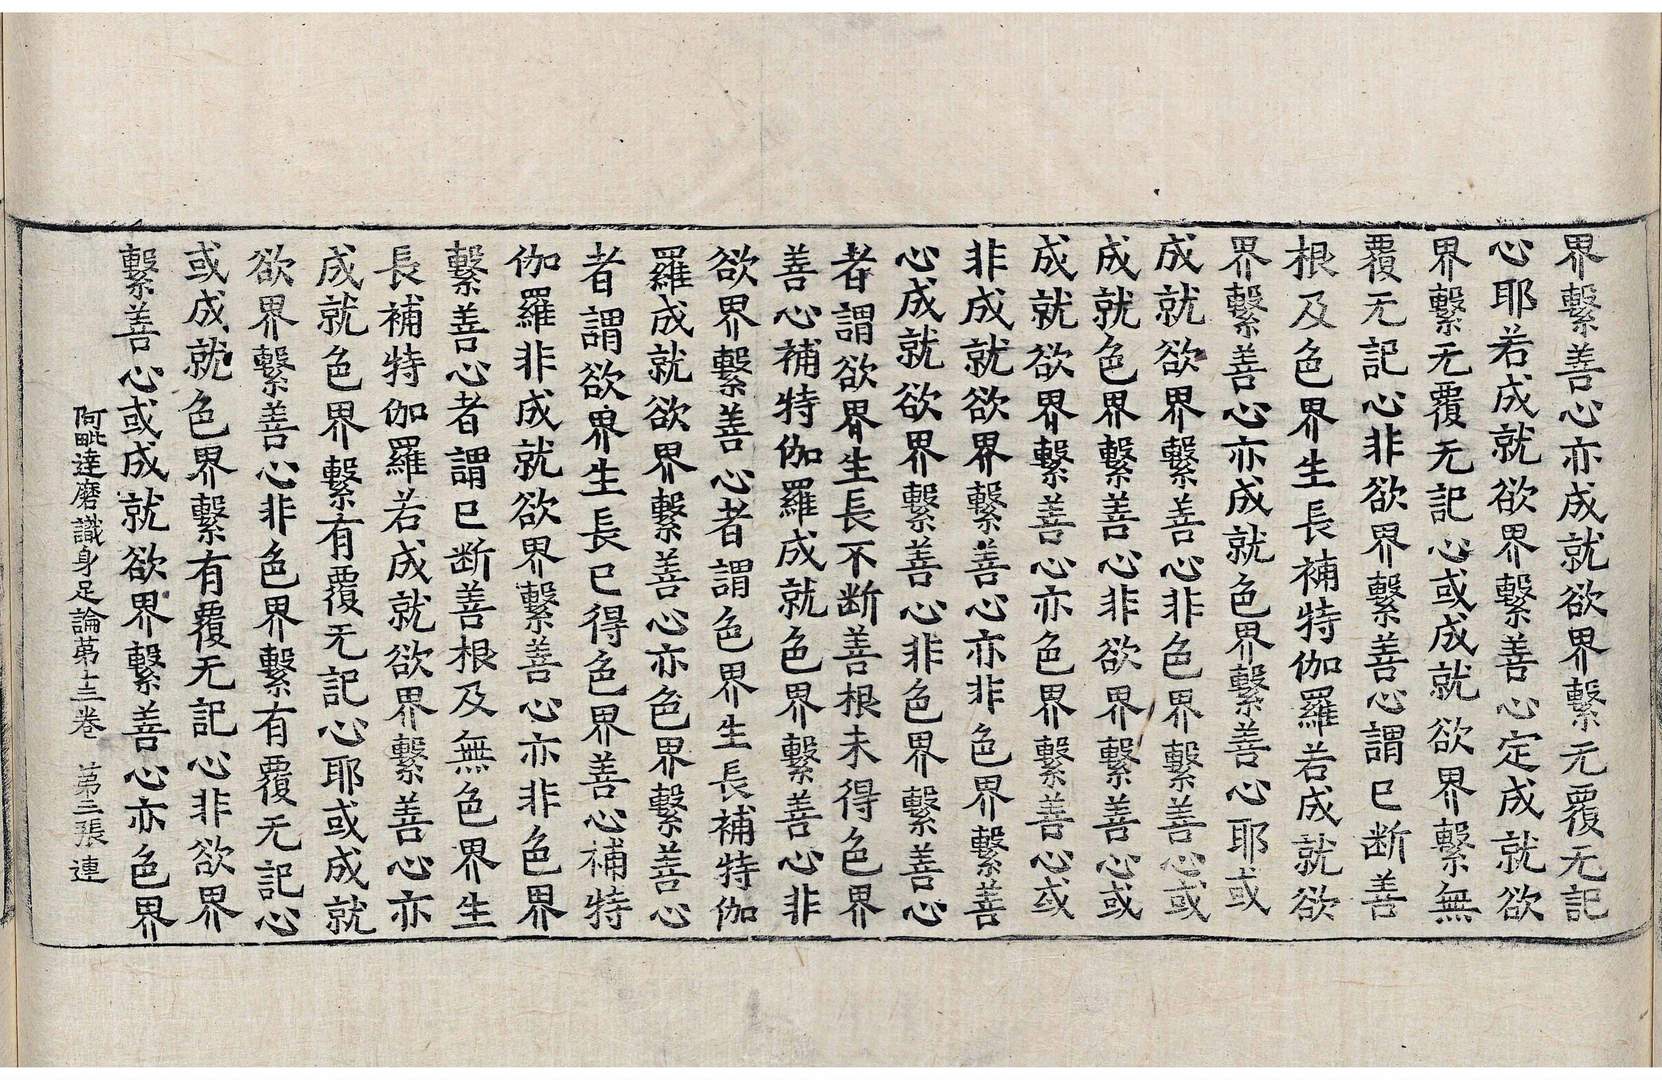 界繫善心亦成就欲界繫无覆无記
心耶若成就欲界繫善心定成就欲
界繫无覆无記心或成就欲界繫無
覆无記心非欲界繫善心謂已断善
根及色界生長補特伽羅若成就欲
界繫善心亦成就色界繫善心耶或
成就欲界繫善心非色界繫善心或
成就色界繫善心非欲界繫善心或
成就欲界繫善心亦色界繫善心或
非成就欲界繫善心亦非色界繫善
心成就欲界繫善心非色界繫善心
者謂欲界生長不断善根未得色界
善心補特伽羅成就色界繫善心非
欲界繫善心者謂色界生長補特伽
羅成就欲界繫善心亦色界繫善心
者謂欲界生長已得色界善心補特
伽羅非成就欲界繫善心亦非色界
繫善心者謂已断善根及無色界生
長補特伽羅若成就欲界繫善心亦
成就色界繫有覆无記心耶或成就
欲界繫善心非色界繫有覆无記心
或成就色界繫有覆无記心非欲界
繫善心或成就欲界繫善心亦色界
阿毗達磨識身足論苐十三卷 苐二張 連